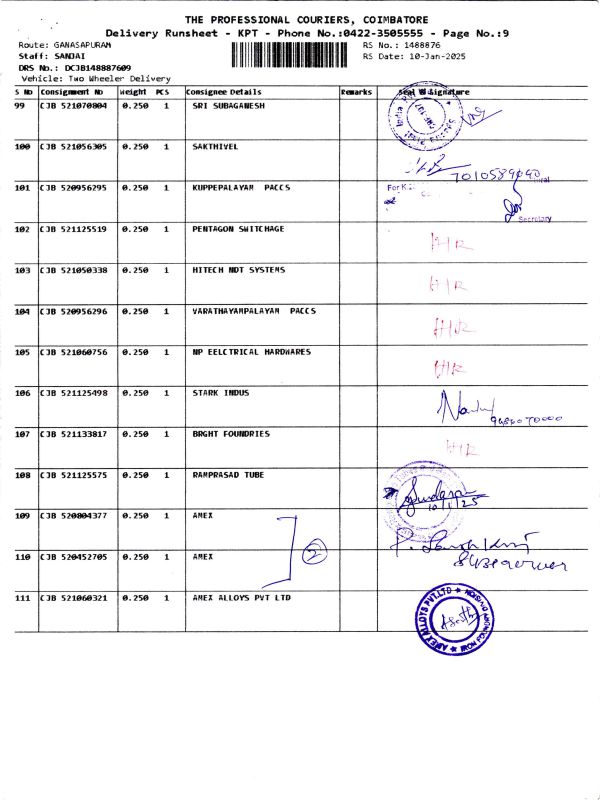 THE PROFESSIONAL COURIERS, COIMBATORE
Delivery Runsheet - KPT - Phone No.:0422-3505555 - Page No.:9
Route: GANASAPURAM RS No.: 1488876
Staff: SANJAI RS Date: 10-Jan-2025
DRS No.: DCJB148887609
Vehicle: Two Wheeler Delivery
S No Consignment No Weight PCS Consignee Details Remarks Seal & Signature
99 CJB 521070804 0.250 1 SRI SUBAGANESH
100 CJB 521056305 0.250 1 SAKTHIVEL
7010589040
101 CJB 520956295 0.250 1 KUPPEPALAYAM PACCS
For K.
Secretary
102 CJB 521125519 0.250 1 PENTAGON SWITCHAGE H/R
103 CJB 521050338 0.250 1 HITECH NDT SYSTEMS H/R
104 CJB 520956296 0.250 1 VARATHAYAMPALAYAM PACCS H/R
105 CJB 521060756 0.250 1 NP EELCTRICAL HARDWARES H/R
106 CJB 521125498 0.250 1 STARK INDUS
107 CJB 521133817 0.250 1 BRGHT FOUNDRIES H/R
108 CJB 521125575 0.250 1 RAMPRASAD TUBE
10/1/25
109 CJB 520804377 0.250 1 AMEX
2
110 CJB 520452705 0.250 1 AMEX
111 CJB 521060321 0.250 1 AMEX ALLOYS PVT LTD
AMEX ALLOYS PVT.LTD ★ IRON FOUNDRY DIVISION ★